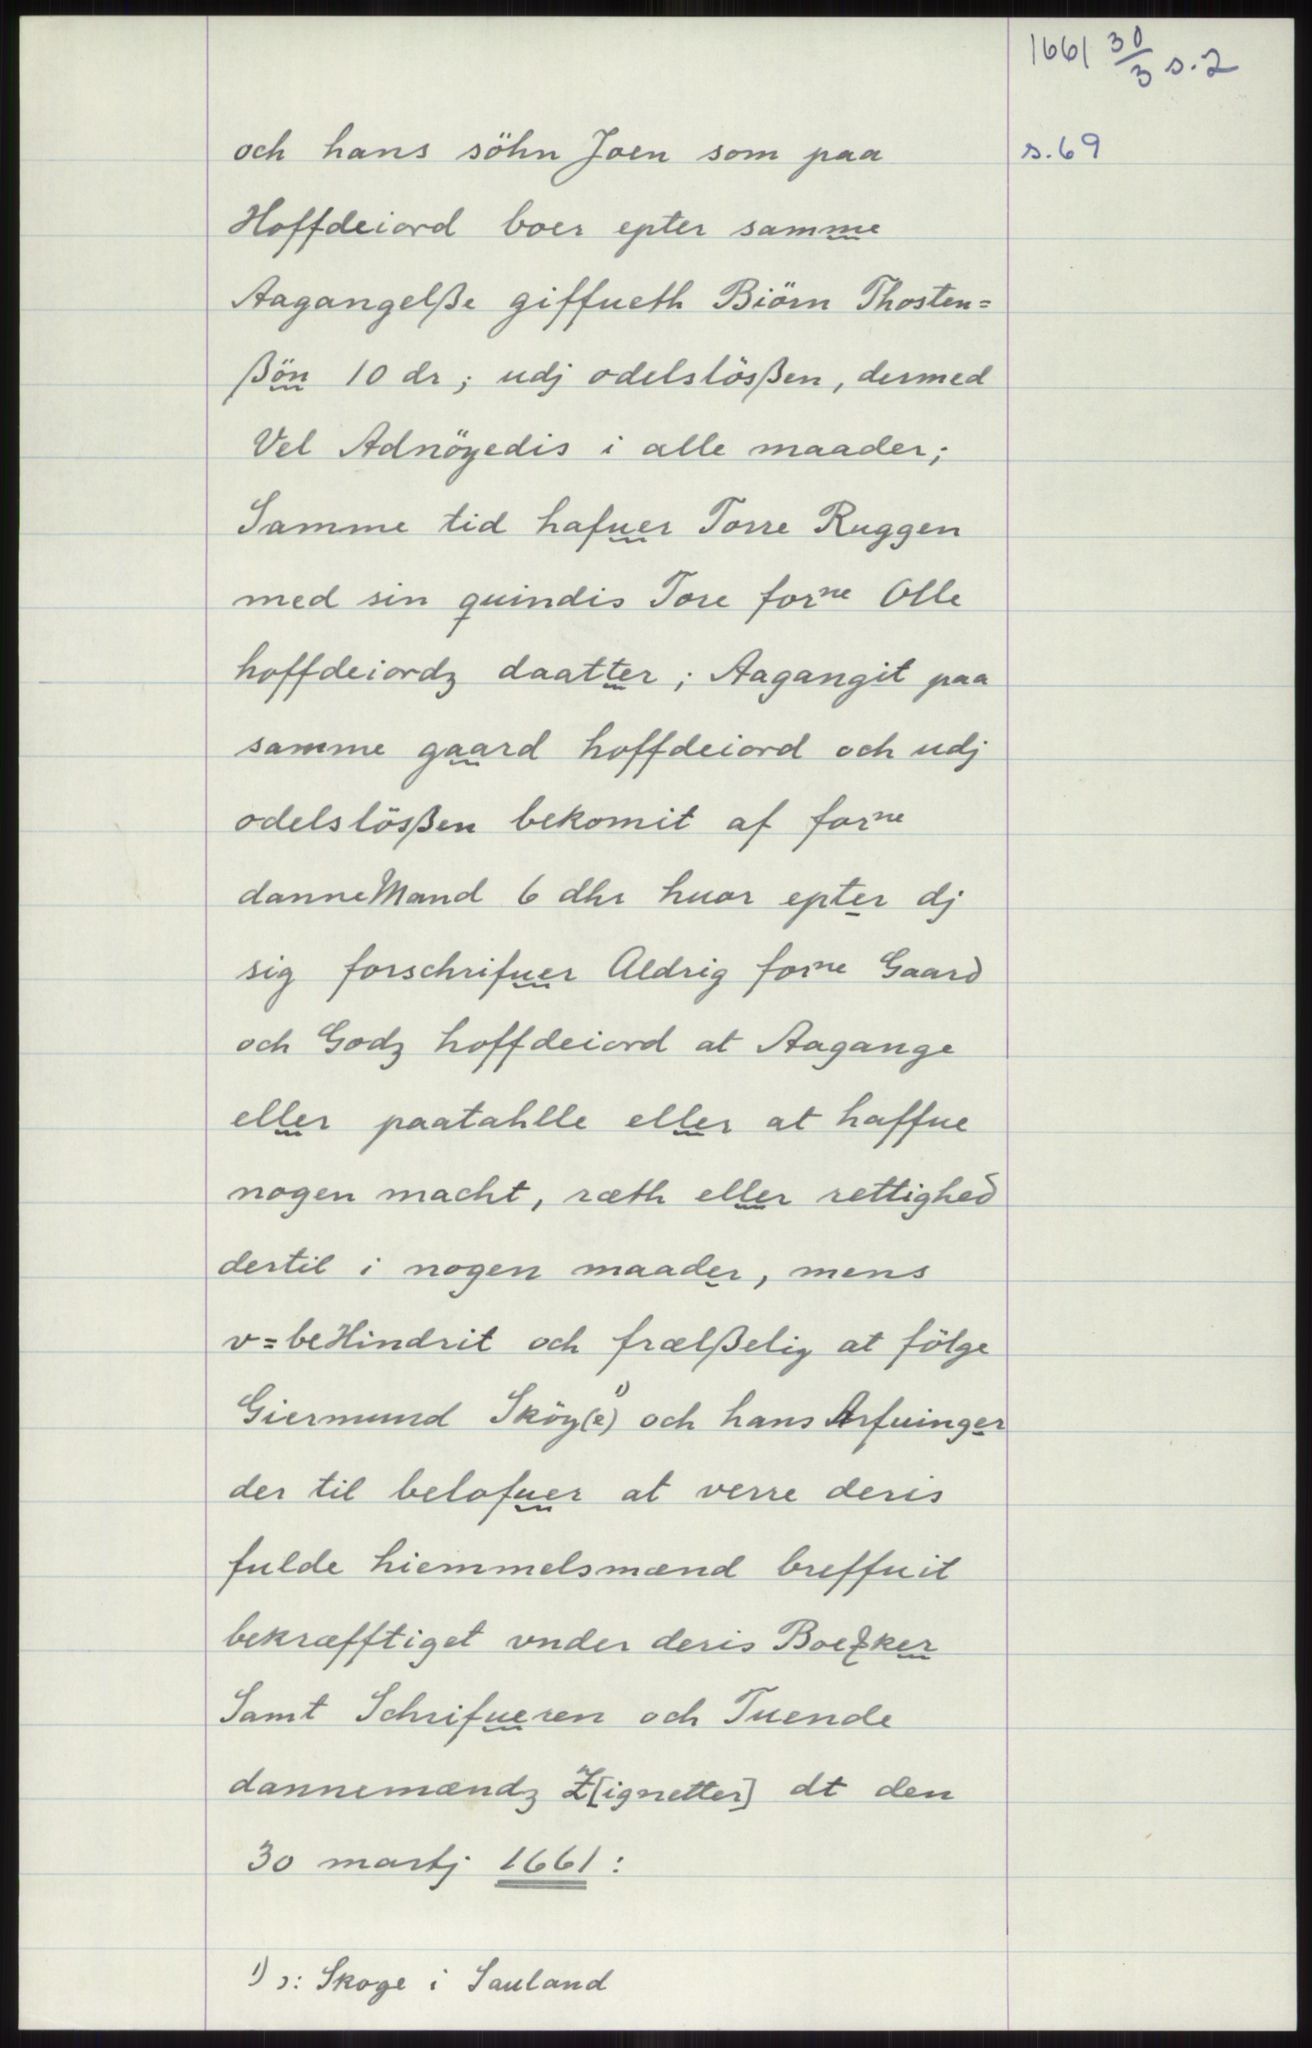 1661 30/3 s.2
s.69
och hans söhn Joen som paa
Hoffdeiord boer epter samme
Aagangelße giffueth Biörn Thosten=
ßön 10 dr; udj odelslösßen, dermed
Vel Adnöyedis i alle maader;
Samme tid hafuer Torre Ruggen
med sin quindis Tore forne Olle
hoffdeiordz daatter; Aagangit paa
samme gaard hoffdeiord och udj
odelslösßen bekomit af forne
danneMand 6 dhr huor epter dj
sig forschrifuer Aldrig forne Gaard
och Godz hoffdeiord at Aagange
eller paatahlle eller at haffue
nogen macht, ræth eller rettighed
dertil i nogen maader, mens
v=beHindrit och frælßelig at fölge
Giermund Sköy(e)1) och hans Arfuinger
der til belofuer at verre deris
fulde hiemmelsmænd breffuit
bekræfftiget vnder deris Boezker
Samt Schrifueren och Tuende
dannemændz Z[ignetter] dt den
30 martj 1661:
1) ɔ: Skoge i Sauland